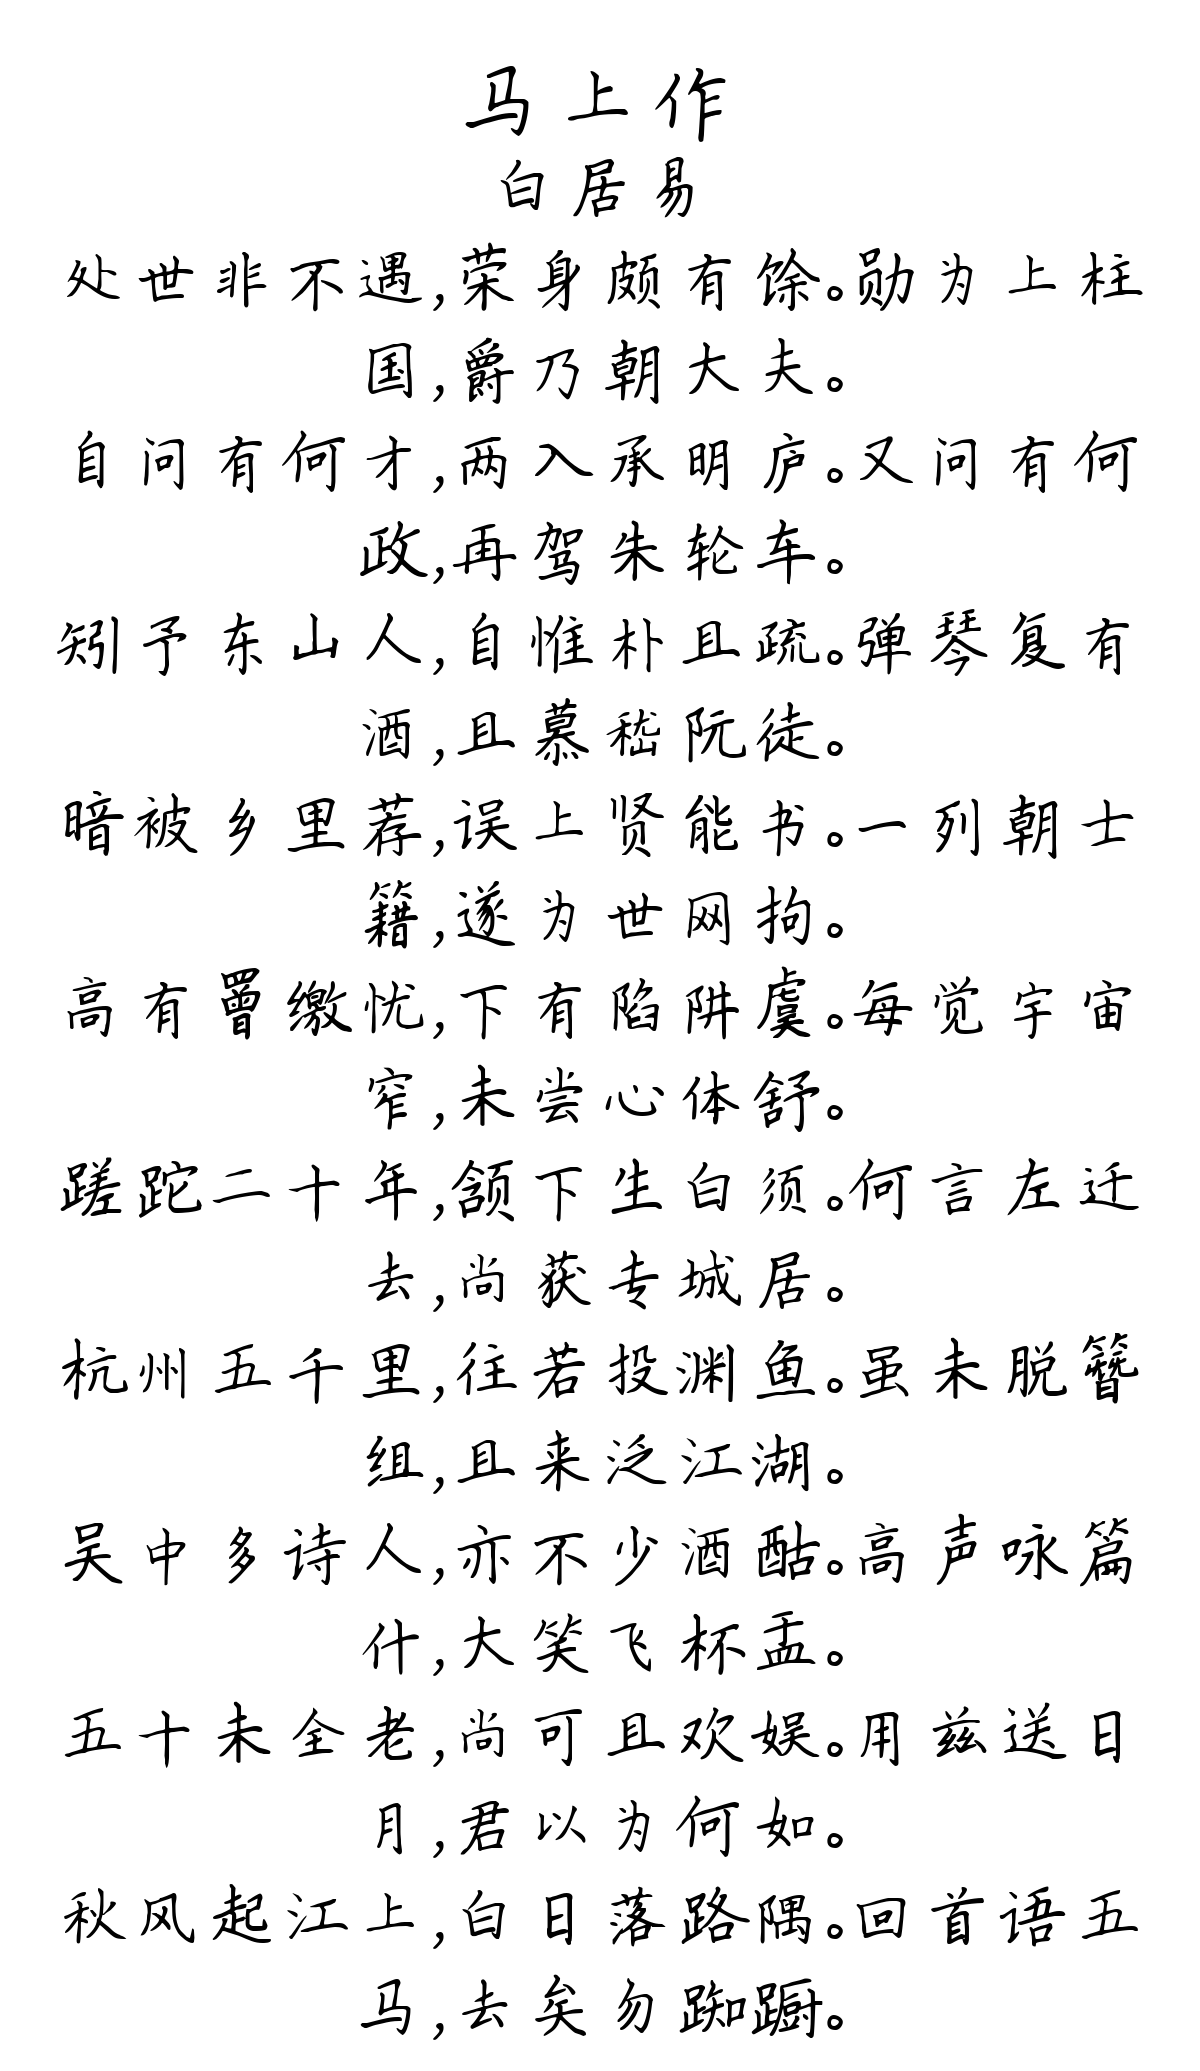 马上作
白居易
处世非不遇,荣身颇有馀。勋为上柱
国,爵乃朝大夫。
自问有何才,两入承明庐。又问有何
政,再驾朱轮车。
矧予东山人,自惟朴且疏。弹琴复有
酒,且慕嵇阮徒。
暗被乡里荐,误上贤能书。一列朝士
籍,遂为世网拘。
高有罾缴忧,下有陷阱虞。每觉宇宙
窄,未尝心体舒。
蹉跎二十年,颔下生白须。何言左迁
去,尚获专城居。
杭州五千里,往若投渊鱼。虽未脱簪
组,且来泛江湖。
吴中多诗人,亦不少酒酤。高声咏篇
什,大笑飞杯盂。
五十未全老,尚可且欢娱。用兹送日
月,君以为何如。
秋风起江上,白日落路隅。回首语五
马,去矣勿踟蹰。